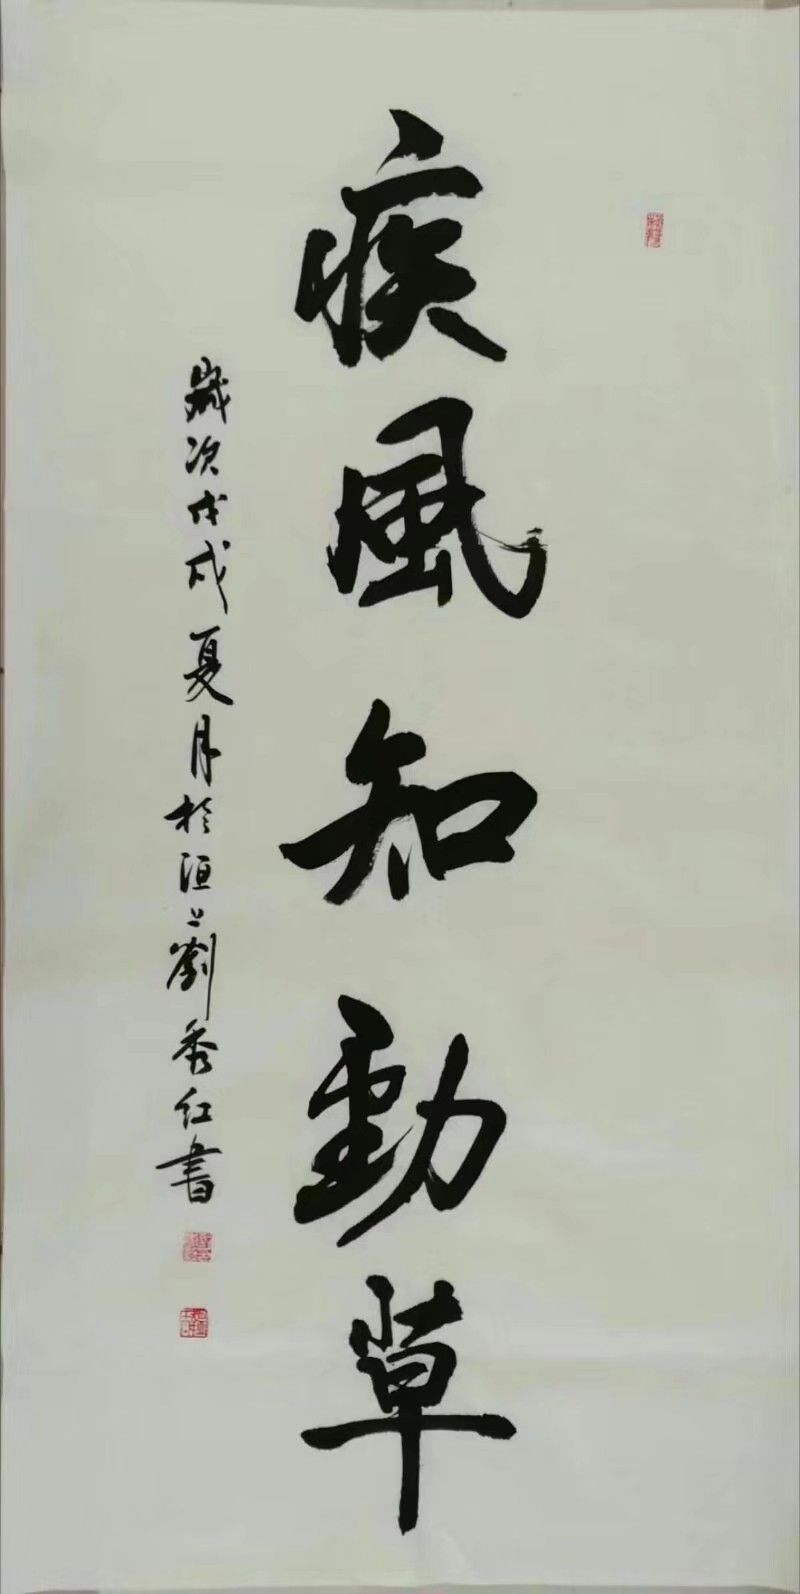 疾風知勁草
歲次戊戌夏月於洹上劉秀红書